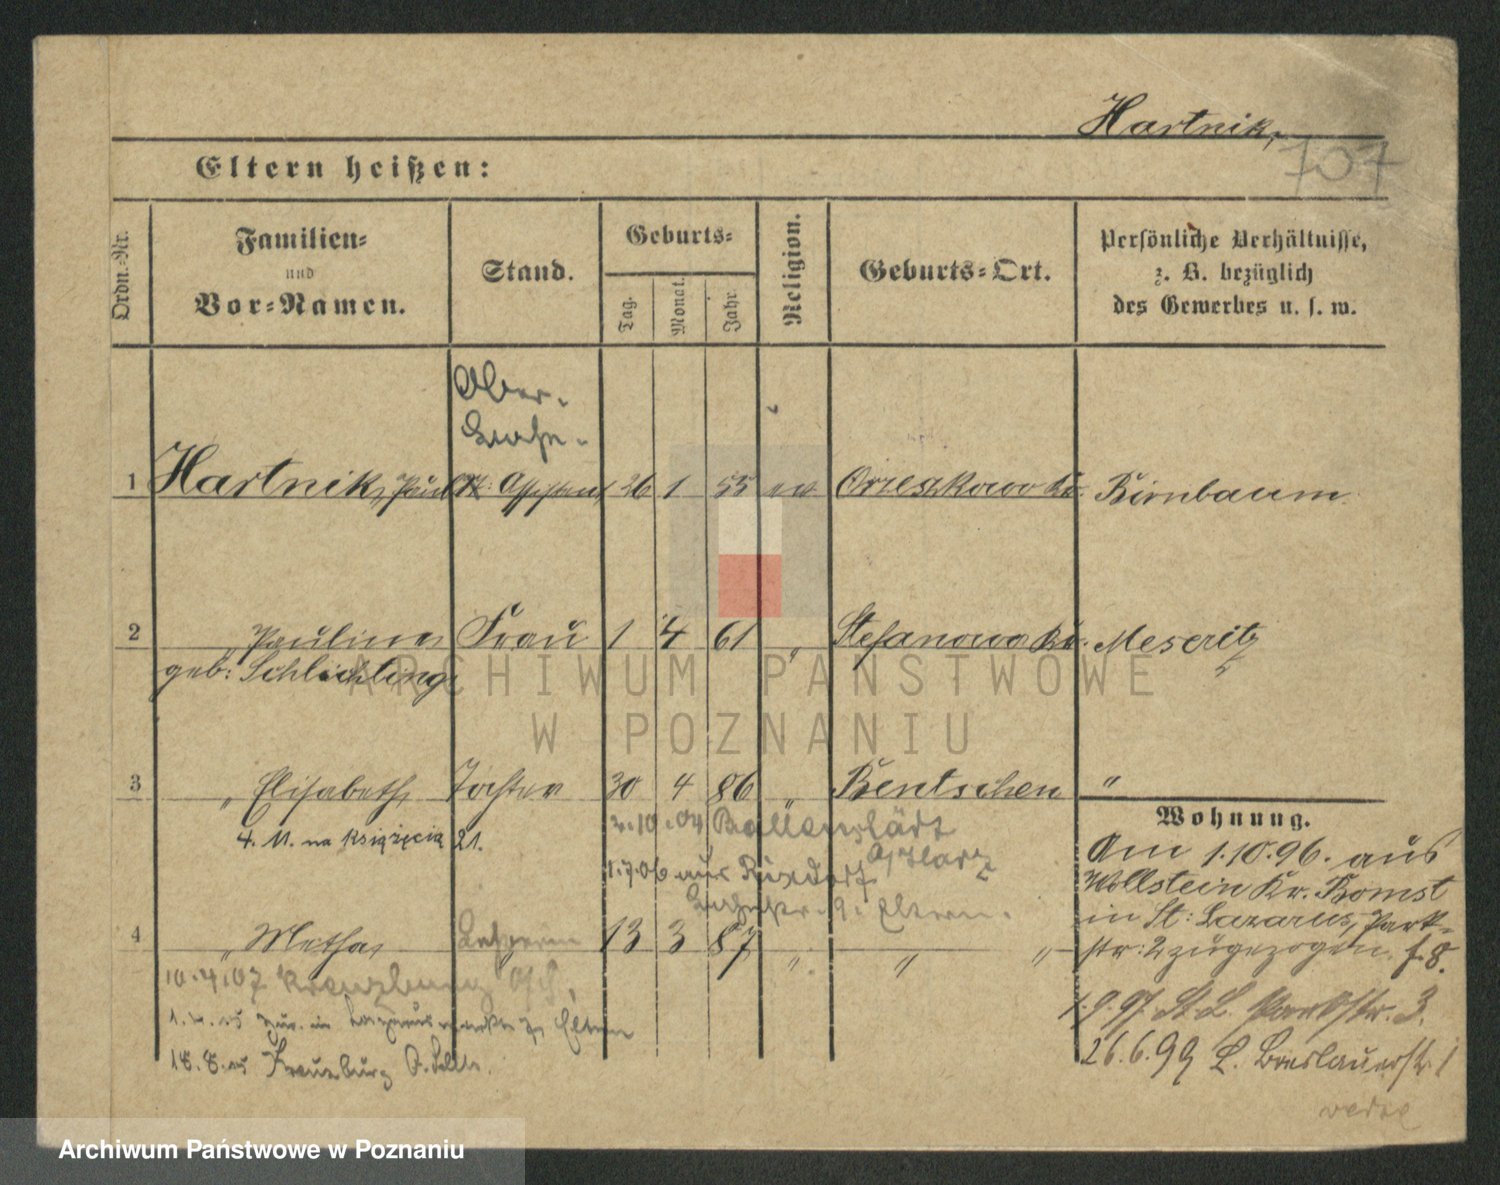 Hartnik,
707
Eltern heißen:
Ordn.-Nr.
Familien-
und
Vor-Namen.
Stand.
Geburts-
Tag.
Monat.
Jahr
Religion.
Geburts-Ort.
Persönliche Verhältnisse,
z. B. bezüglich
des Gewerbes u. s. w.
Ober-
1 Hartnik, Paul Assistent 26 1 55 ev Orzeszkowo Kr. Birnbaum
2 " Pauline Frau 1 4 61 " Stefanowo Kr. Meseritz
geb: Schlichting
ARCHIWUM PAŃSTWOWE
W POZNANIU
3 " Elisabeth Tochter 30 4 86 " Bentschen "
4. 11. na książęcią 21.
2.10.04 Ballenstädt
a/Harz
1.7.06 aus Rixdorf
Eltern.
4 " Metha Lehrerin 13 3 87 " " "
10.4.07 Kreuzburg O/S.
Eltern
18.8. Kreuzburg O.
Wohnung.
Am 1.10.96. aus
Wollstein Kr. Bomst
in St: Lazarus, Park-
str: 2 zugezogen. f. 8.
1.9.97. St. L. Parkstr. 3.
26.6.99 L. Breslauerstr. 1
Archiwum Państwowe w Poznaniu